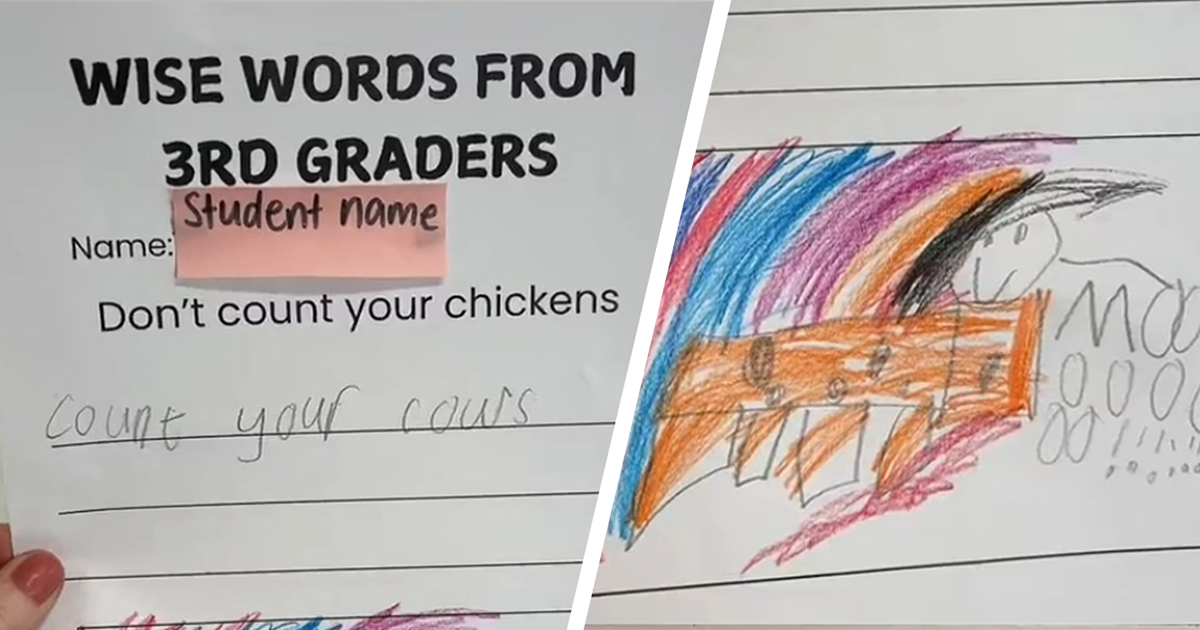 WISE WORDS FROM
3RD GRADERS
Student name
Name:
Don't count your chickens
count your cows